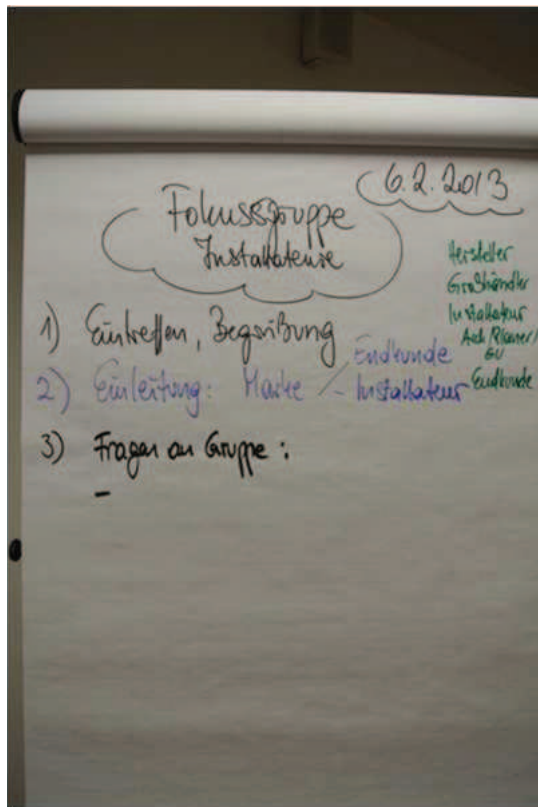 6.2.2013
Fokussgruppe
Installateure
Hersteller
Großhändler
Installateur
Arch/Planer/
GU
Endkunde
1) Eintreffen, Begrüßung
2) Einleitung: Marke / Endkunde
- Installateur
3) Fragen an Gruppe:
-